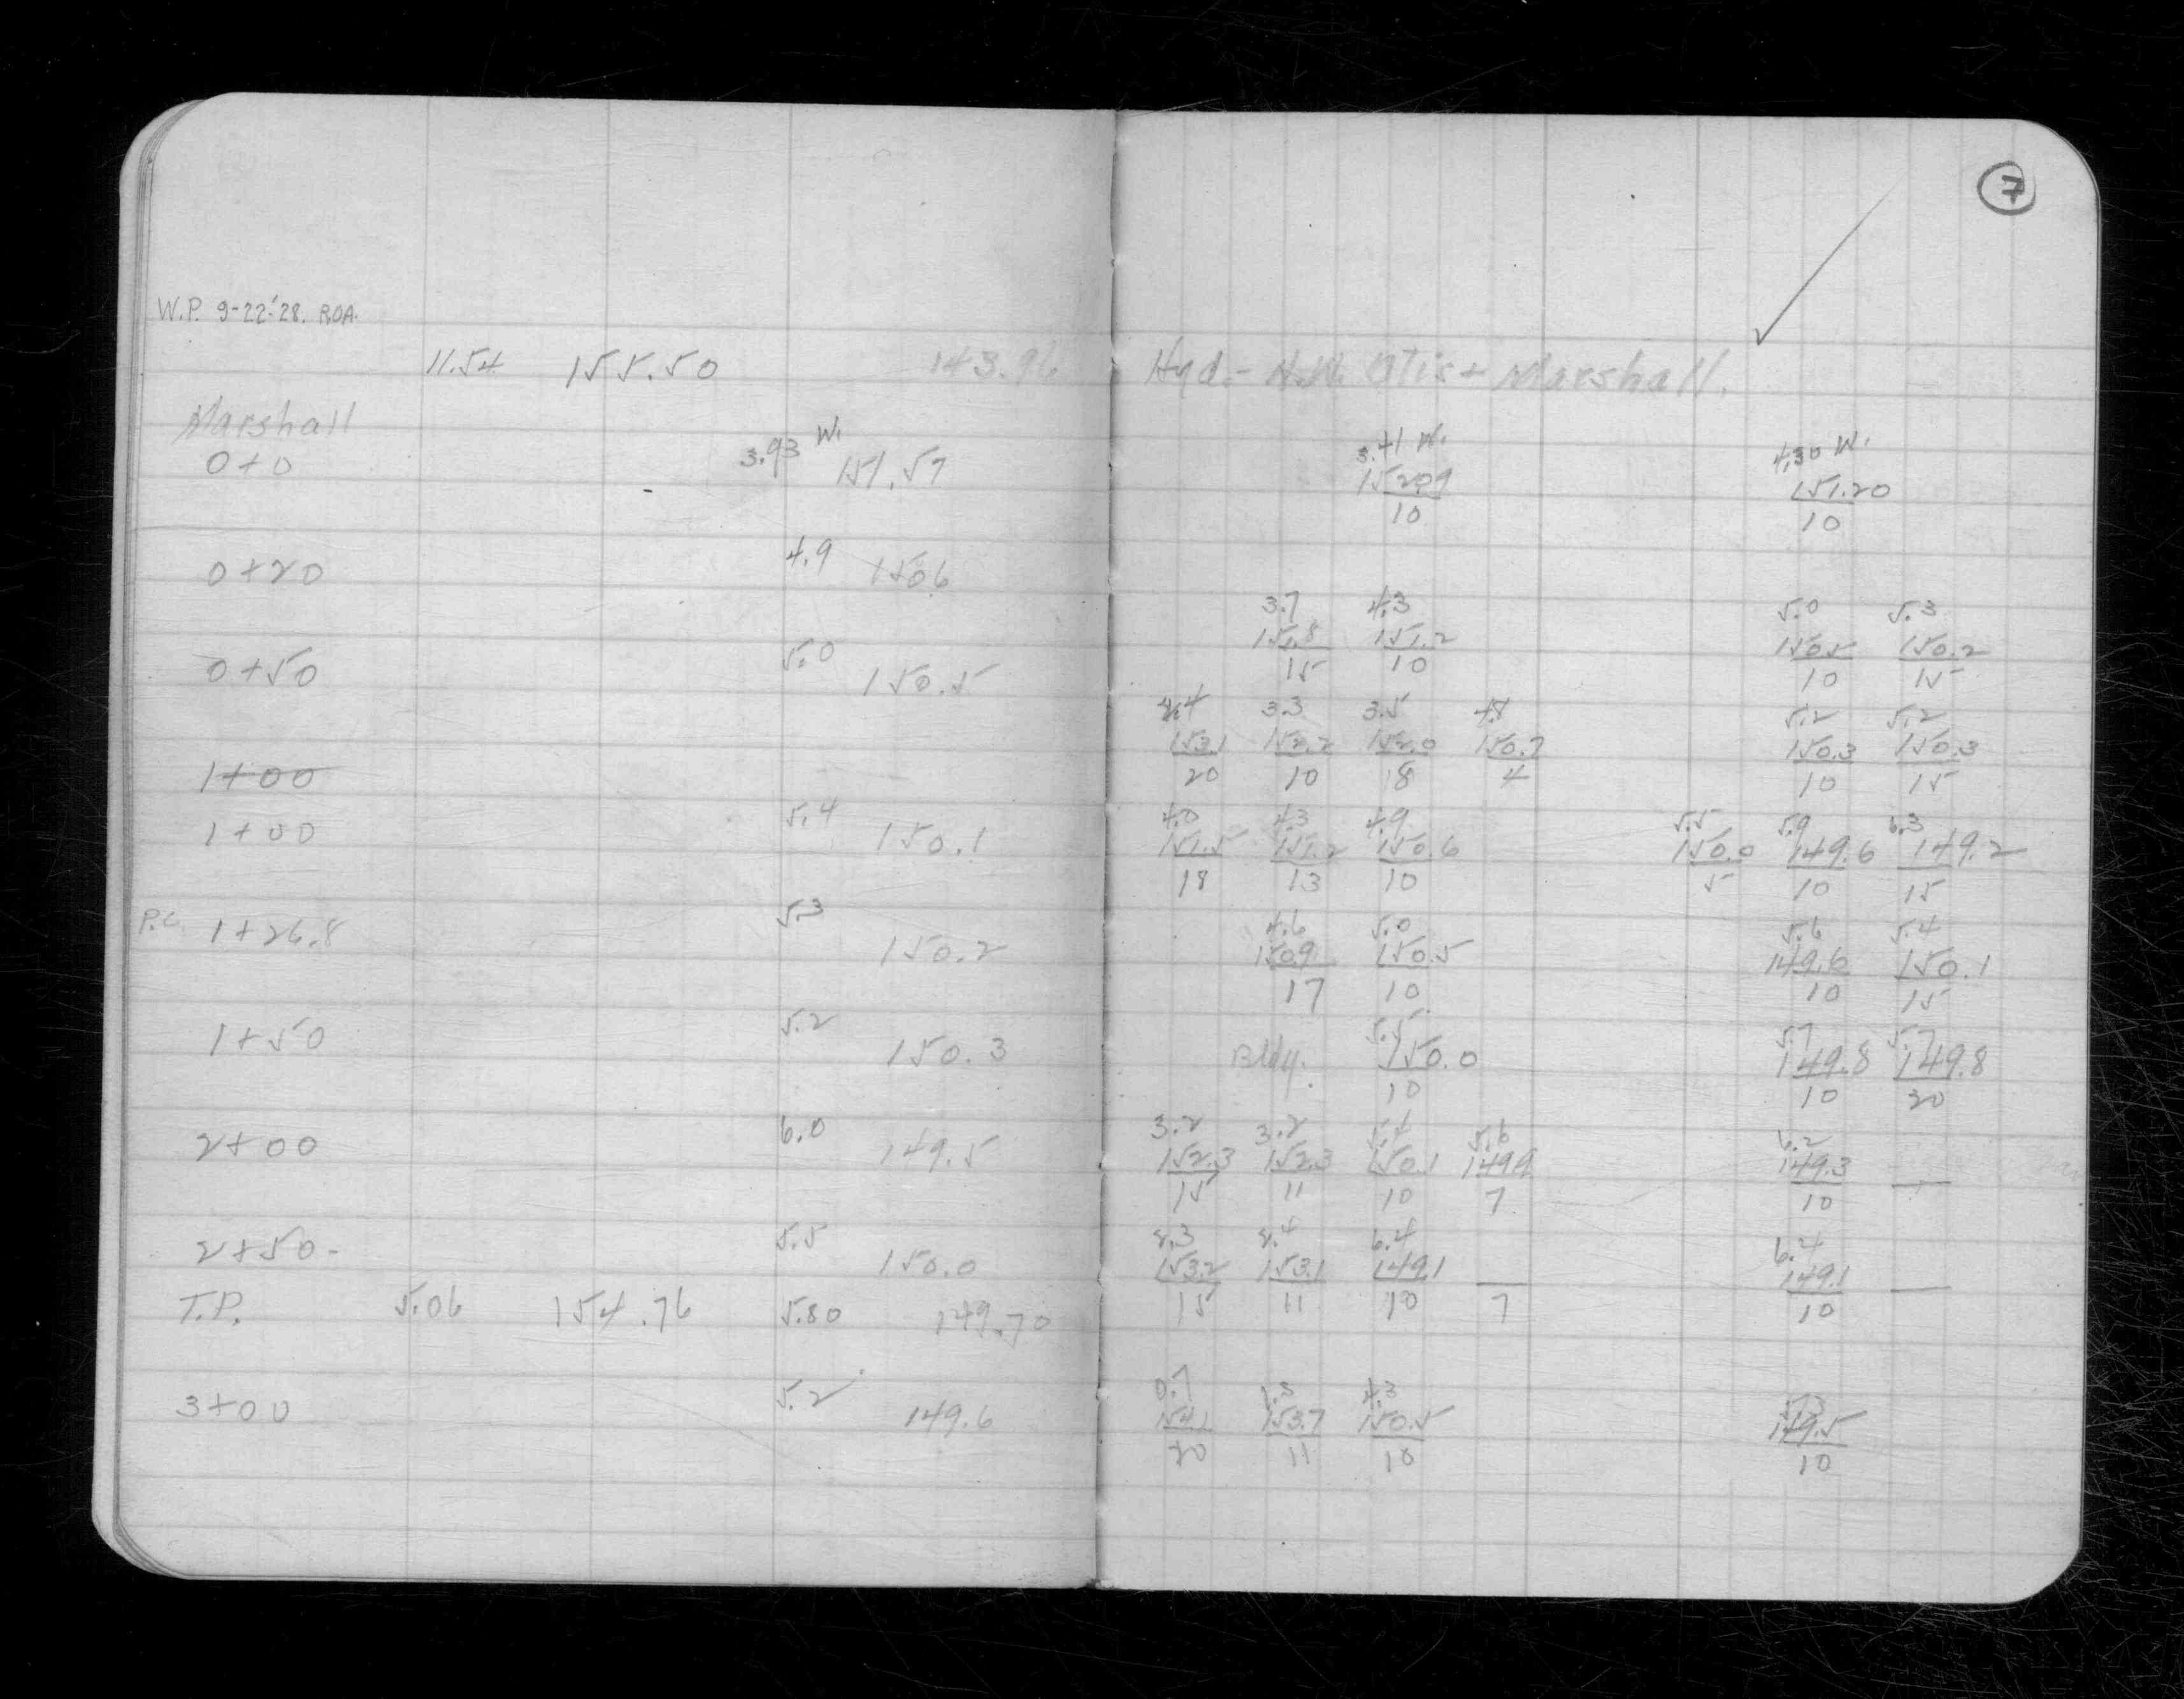 7
W.P. 9-22-'28. ROA.
11.54 155.50 143.96 Hyd. - N.W. Otis + Marshall.
Marshall
3.93 W. 3.41 W. 4.30 W.
0+0 151.57 152.09 151.20
10 10
0+20 4.9 150.6
3.7 4.3 5.0 5.3
151.8 151.2 150.5 150.2
0+50 5.0 150.5 15 10 10 15
2.4 3.3 3.5 4.8 5.2 5.2
153.1 152.2 152.0 150.7 150.3 150.3
1+00 20 10 18 4 10 15
4.0 4.3 4.9 5.5 5.9 6.3
1+00 5.4 150.1 151.5 151.2 150.6 150.0 149.6 149.2
18 13 10 5 10 15
4.6 5.0 5.6 5.4
P.C. 1+26.8 5.3 150.2 150.9 150.5 149.6 150.1
17 10 10 15
5.5 5.7 5.7
1+50 5.2 150.3 Bldg. 150.0 149.8 149.8
10 10 20
3.2 3.2 5.4 5.6 6.2
2+00 6.0 149.5 152.3 152.3 150.1 149.9 149.3
15 11 10 7 10
2.3 2.4 6.4 6.4
2+50 - 5.5 150.0 153.2 153.1 149.1 149.1
15 11 10 7 10
T.P. 5.06 154.76 5.80 149.70
0.7 4.3 5.3
3+00 5.2 149.6 154.1 153.7 150.5 149.5
20 11 10 10